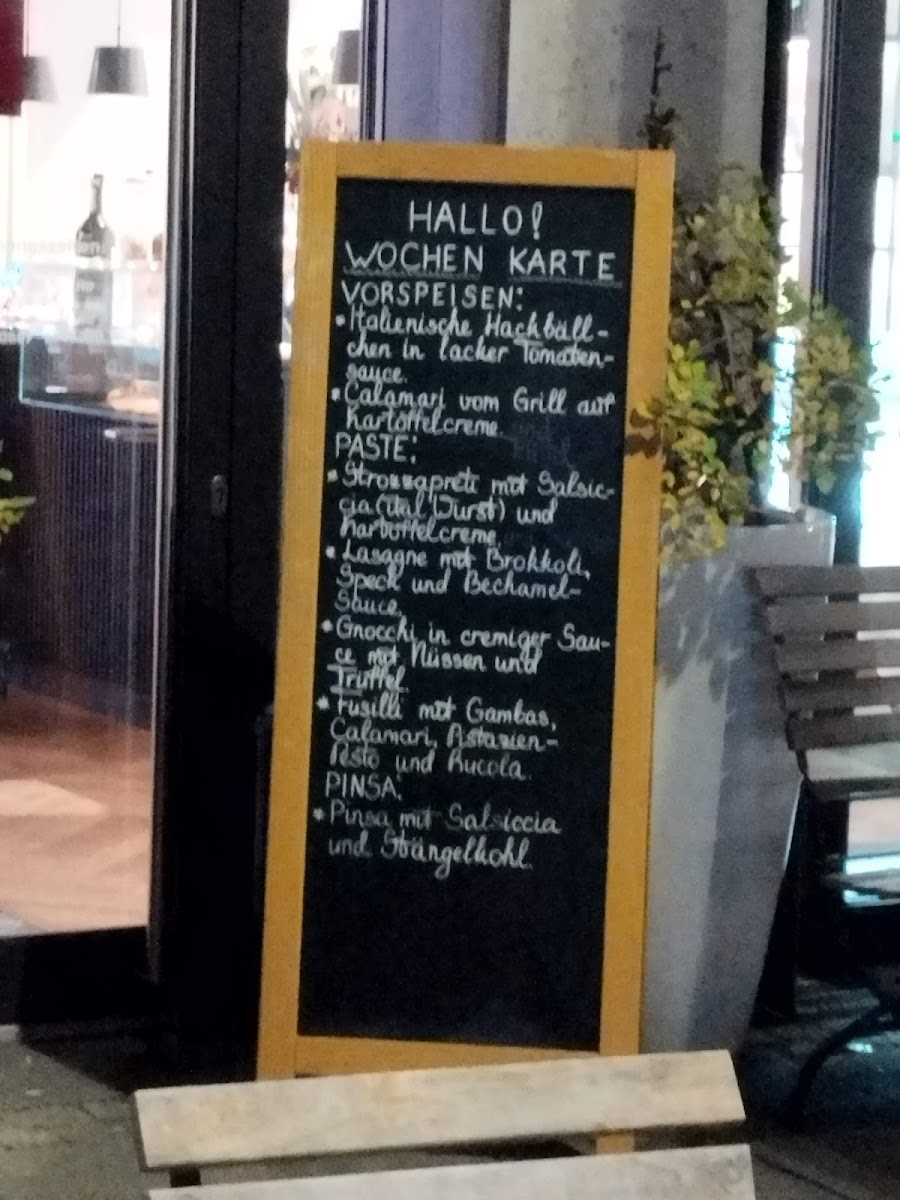 HALLO!
WOCHEN KARTE
VORSPEISEN:
• Italienische Hackbäll-
chen in lacker Tomaten-
sauce.
• Calamari vom Grill auf
Kartoffelcreme.
PASTE:
• Strozzapreti mit Salsic-
cia (ital. Wurst) und
Kartoffelcreme.
• Lasagne mit Brokkoli,
Speck und Bechamel-
Sauce.
• Gnocchi in cremiger Sau-
ce mit Nüssen und
Trüffel.
• Fusilli mit Gambas,
Calamari, Pistazien-
Pesto und Rucola.
PINSA:
• Pinsa mit Salsiccia
und Stängelkohl.